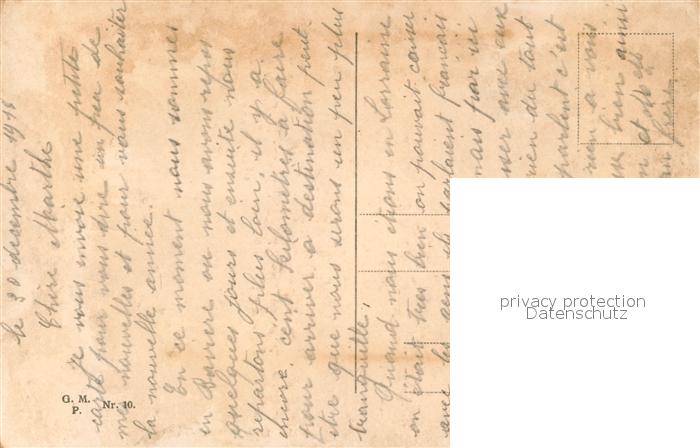 le 30 desembre 1918
Chère Marthe
Je vous envoie une petite
carte pour vous dire un peu de
mes nouvelles et pour vous souhaiter
la nouvelle année.
En ce moment nous sommes
en Baviere ou nous avons repos
quelques jours et ensuite nous
repartons plus loin, il y a
encore cent kilometres à faire
pour arriver a destination peut
être que nous serons un peu plus
tranquille.
Quand nous étions en Lorraine
on était très bien on pouvait causer
avec les gens ils parlaient français
mais par ici
avec eux
rien du tout
parlent c'est
rien a vous
bien aussi
et
G. M.
P.
Nr. 10.
privacy protection
Datenschutz